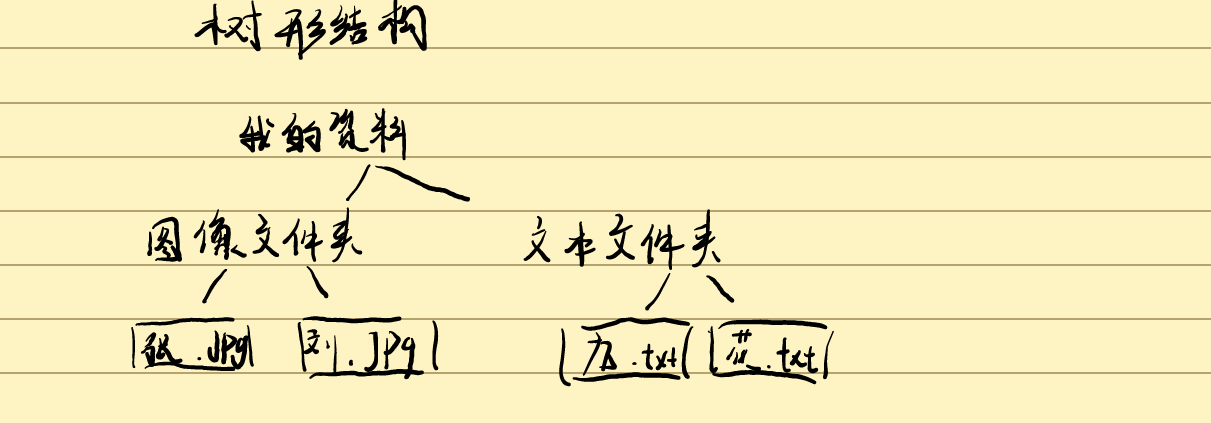 树形结构
我的资料
图像文件夹 文本文件夹
张.JPg 刘.JPg .txt 花.txt